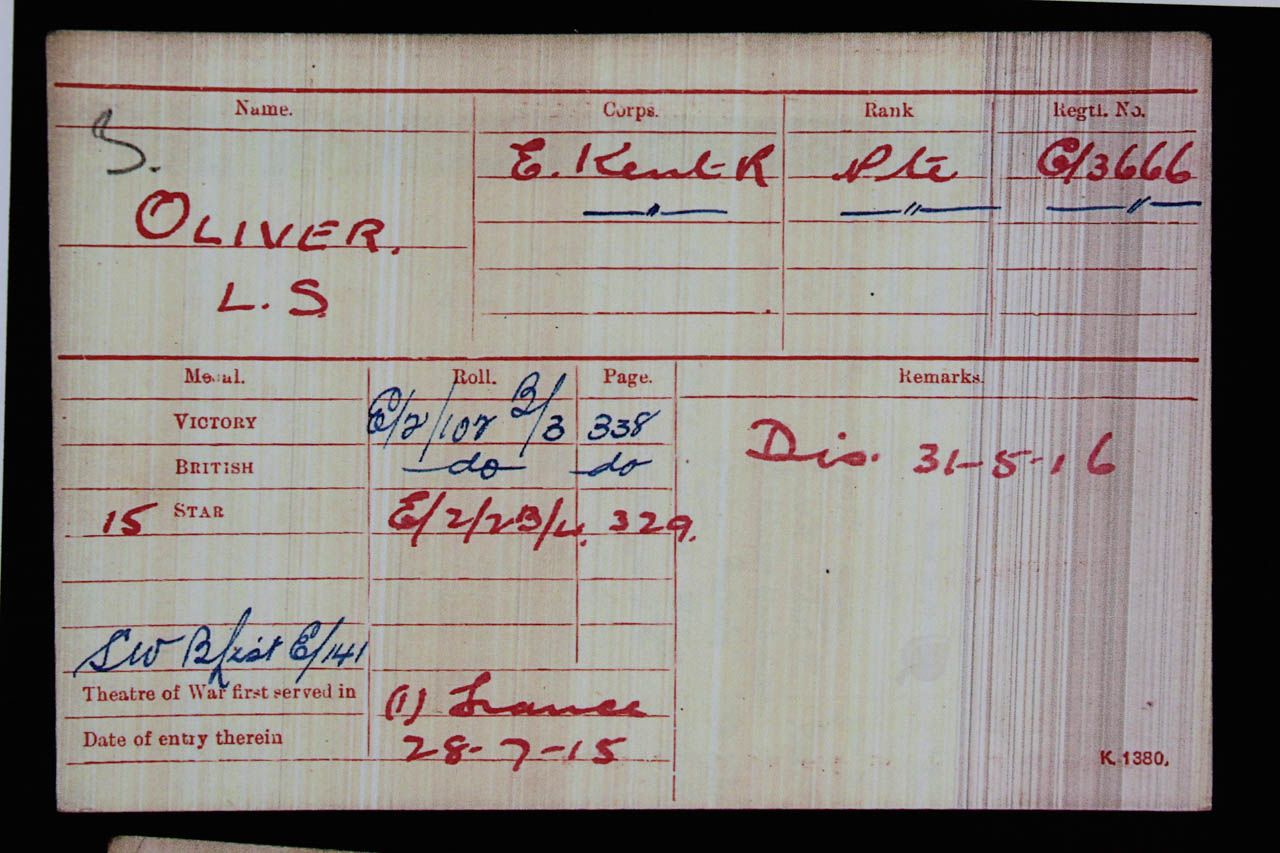 Name. Corps. Rank Regtl. No.
S.
E. Kent R Pte G/3666
—"— —"— —"—
OLIVER.
L. S
Medal. Roll. Page. Remarks.
VICTORY E/2/102 B/3 338
BRITISH do do
Dis. 31-5-16
15 STAR E/2/2B/4. 329.
SW B/List E/141
Theatre of War first served in (1) France
Date of entry therein 28-7-15
K. 1380.